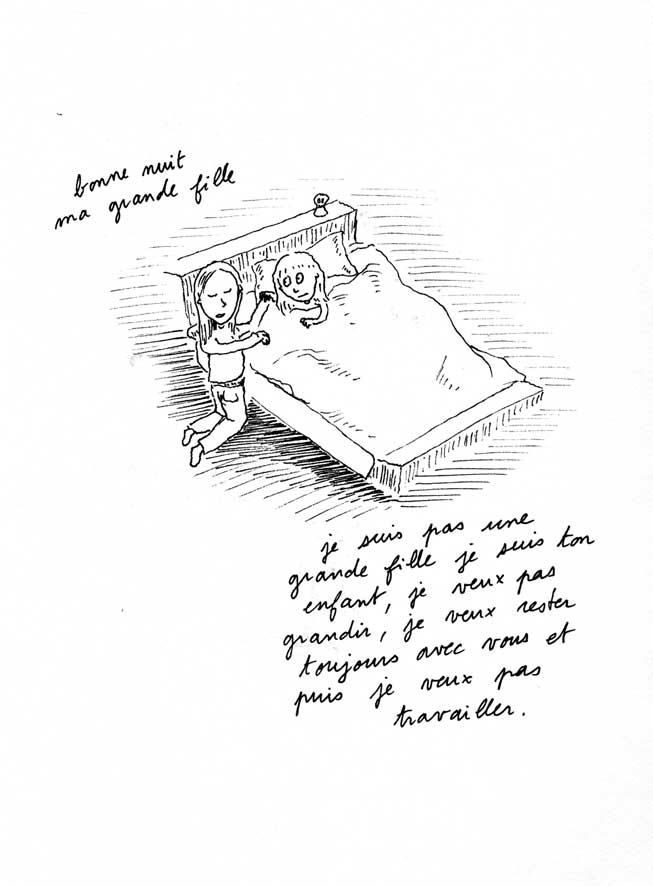 bonne nuit
ma grande fille
je suis pas une
grande fille je suis ton
enfant, je veux pas
grandir, je veux rester
toujours avec vous et
puis je veux pas
travailler.